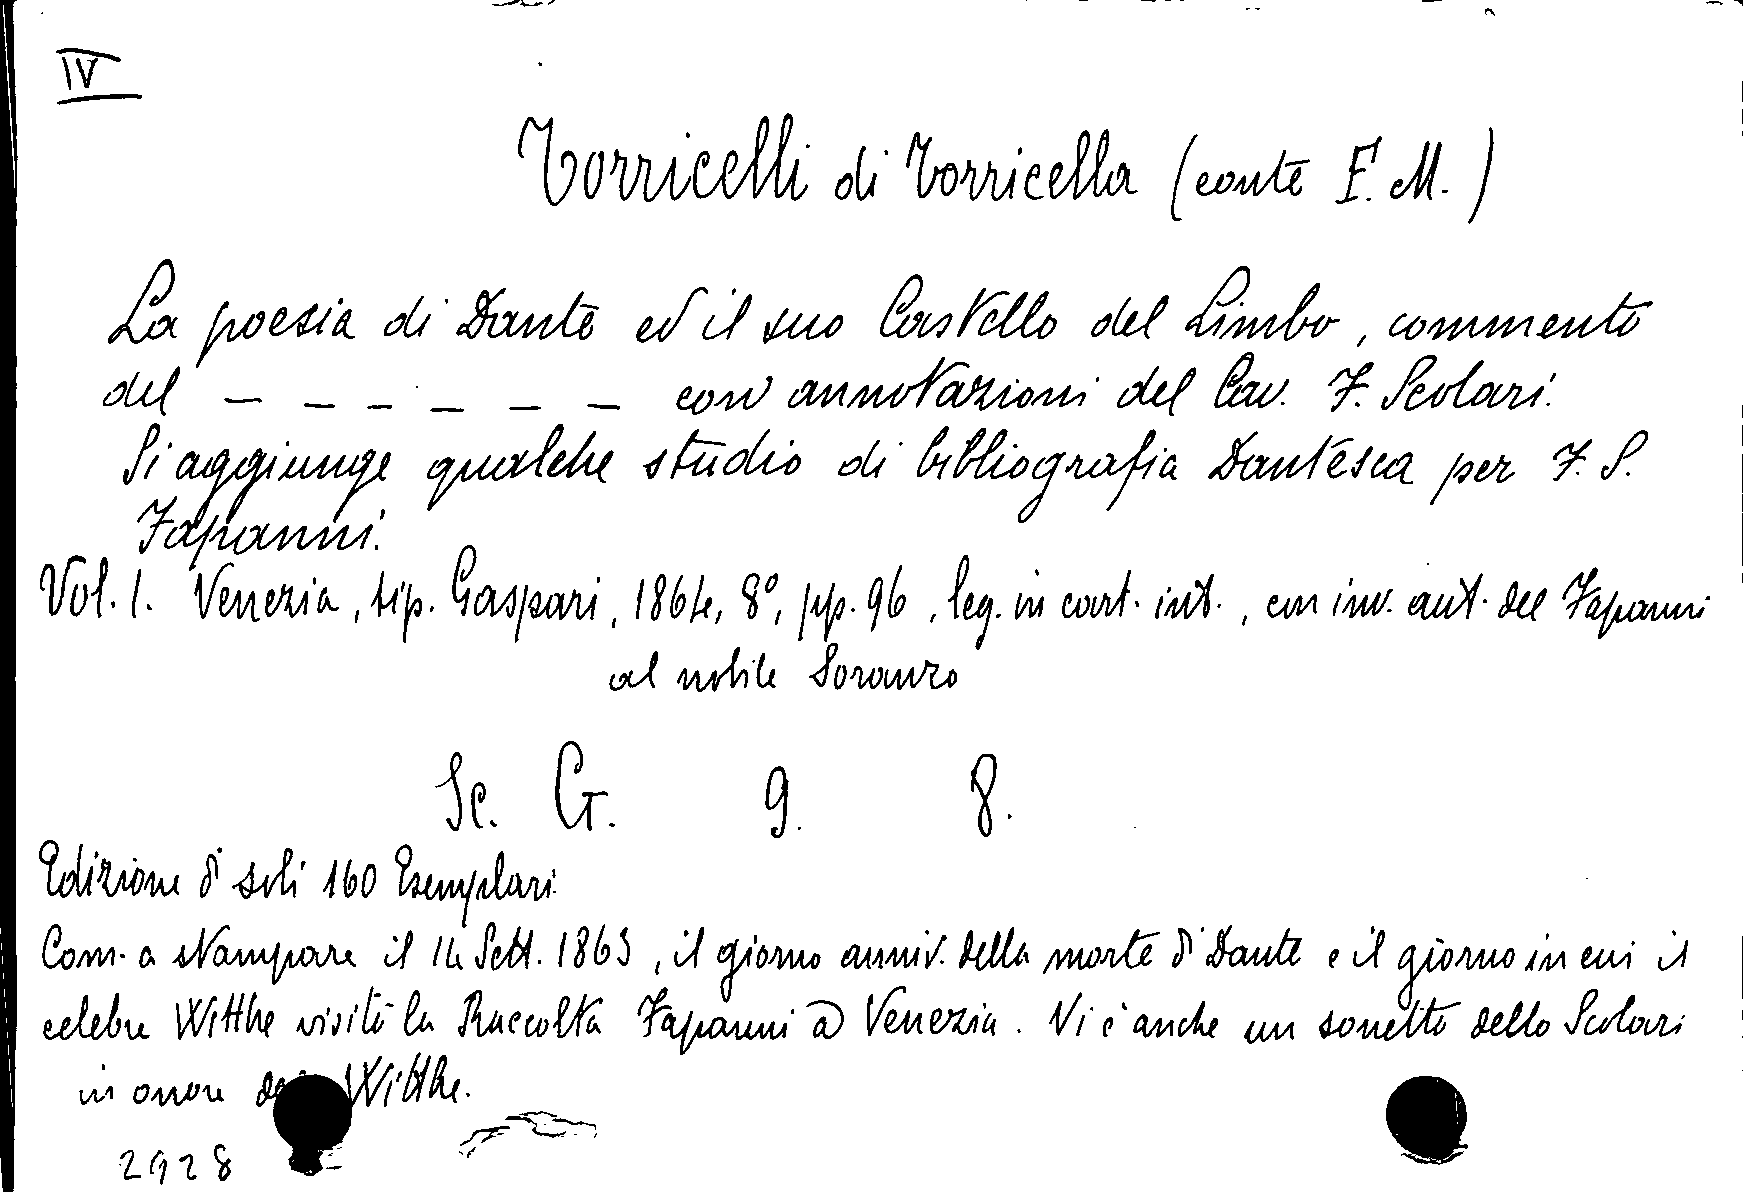 IV
Torricelli di Torricella (conte F. M.)
La poesia di Dante ed il suo Castello del Limbo, commento
del – – – – – – con annotazioni del Cav. F. Scolari.
Si aggiunge qualche studio di bibliografia Dantesca per F. S.
Fapanni.
Vol. 1. Venezia, tip. Gaspari, 1864, 8°, pp. 96, leg. in cart. int., con inv. aut. del Fapanni
al nobile Soranzo
Sc. G. 9. 8.
Edizione di soli 160 Esemplari
Com. a stampare il 14 Sett. 1863, il giorno anniv. della morte di Dante e il giorno in cui il
celebre Witthe visitò la Raccolta Fapanni a Venezia. Vi è anche un sonetto dello Scolari
in onore Witthe.
2928